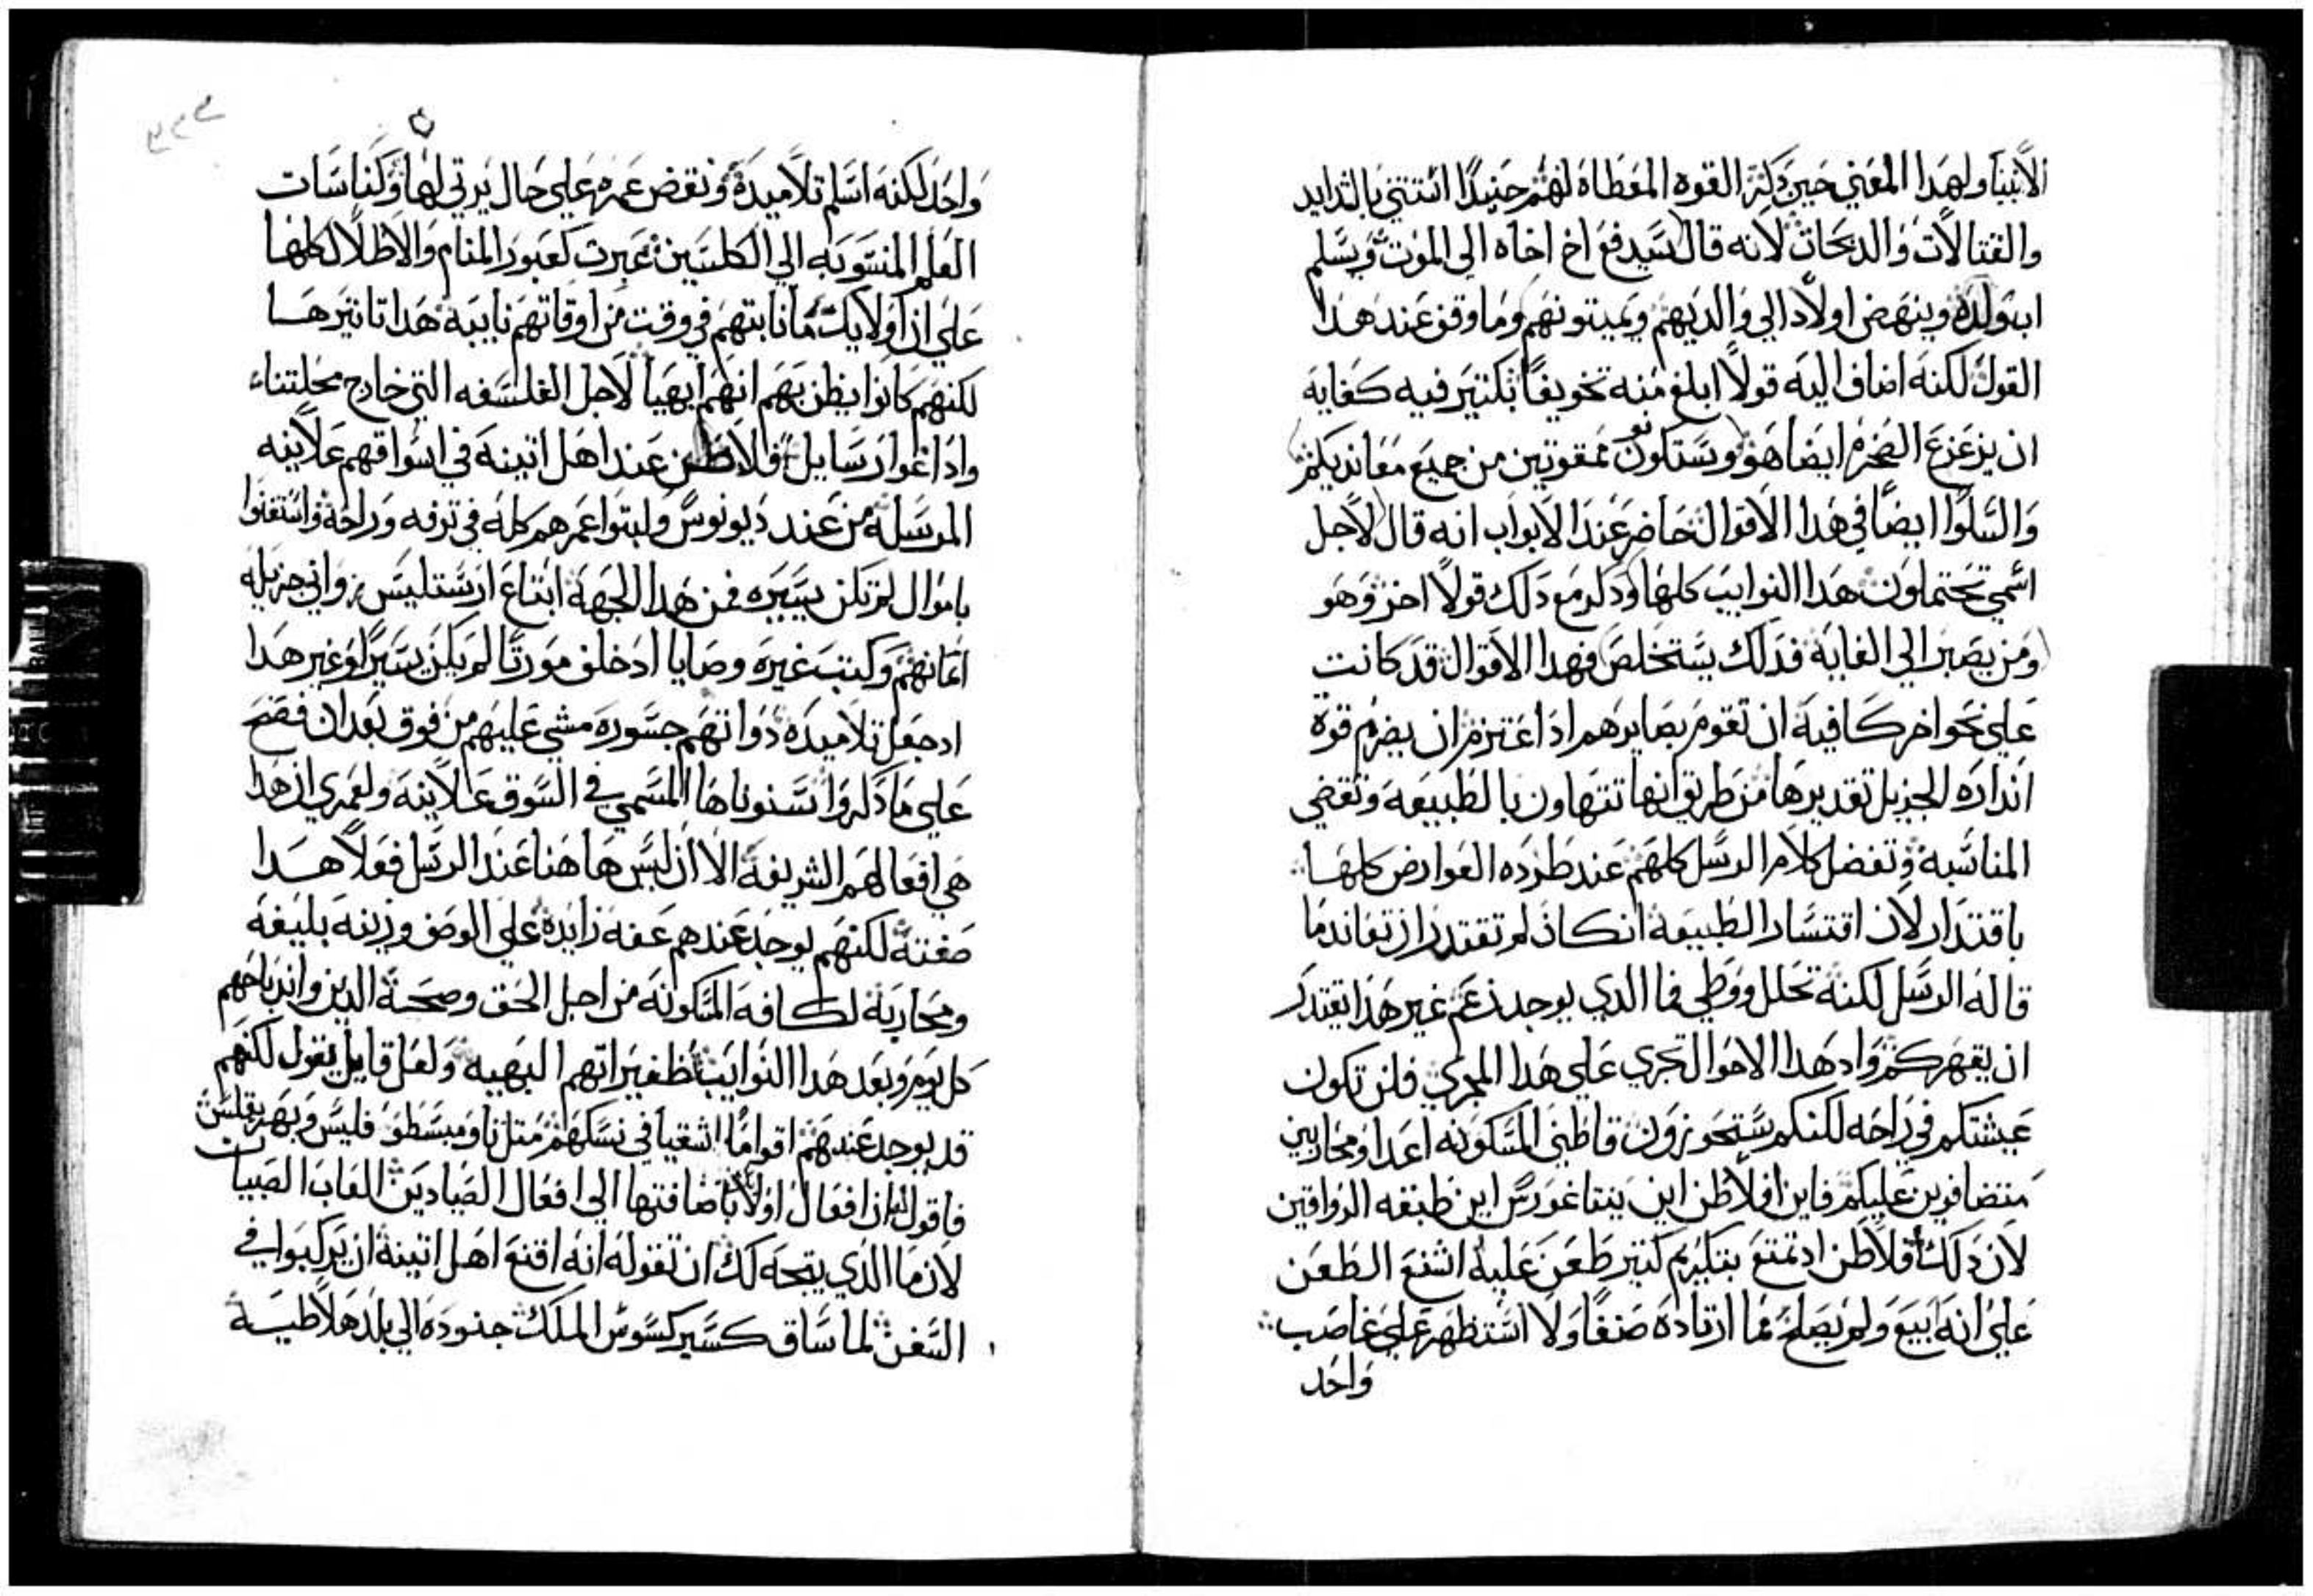 الأنبيا ولهدا المعني حين دكر القوه المعطاة لهم حنيدًا ائتتني بالتدايد
والقتالات والدبحات لانه قال سيدفع اخ اخاه الى الموت ويسلم
اب ولده وينهض اولاد الي والديهم ويميتونهم وما وقف عند هدا
القول لكنه اضاف اليه قولاً ابلغ منه تخويفًا بكتير فيه كفايه
ان يزعزع الصخره ايضا هو وستكونون ممقوتين من جميع معانديكم
والسلوا ايضًا في هدا الاقوال حاضر عند الابواب انه قال لاجل
اسمي تحتملون هدا النوايب كلها ودكر مع دلك قولاً اخر وهو
ومن يصبر الي الغاية فدلك يستخلص فهدا الاقوال قد كانت
علي نحو اخر كافيه ان تقوم بصايرهم ادا اعتزم ان يضرم قوة
انداره الجزيل تقديرها من طريق انها تتهاون بالطبيعه وتقضي
المناسبة وتفضل كلام الرسل كلهم عند طرده العوارض كلها
باقتدار لان اقتسار الطبيعة ان كان لم تقتدر ان تعاند ما
قاله الرسل لكنه تحلل ووطي فما الدي يوجد نزعم غير هدا تقتدر
ان يقهركم واد هدا الاحوال تجري علي هدا المجري فلن تكون
عيشتكم في راحه لكنكم ستحوزون قاطني المسكونه اعدا ومحاربين
متضافرين عليكم فاين افلاطن اين بيتاغورس اين طبقه الرواقيين
لان دلك افلاطن اد تمتع بتكريم كتير طعن عليه اشنع الطعن
علي انه ابيع ولم يصلح مما ارتاده صنفًا ولا استظهر علي غاصب
واحد
واحد لكنه اسلم تلاميده ونقض عمره علي حال يرتي لها وكناسات
العلم المنسوبه الي الكلبيين عبرت كعبور المنام والاطلال كلها
علي ان اولايك ما نابتهم في وقت من اوقاتهم نايبه هدا تاتيرها
لكنهم كانوا يظن بهم انهم ابهيا لاجل الفلسفه التي خارج محلتنا
وادا غوا رسايل فلاطن عند اهل اتينه في اسواقهم علانيه
المرسله من عند ديونوس ولبتوا عمرهم كله في ترفه وراحه واستغنوا
باموال لم تكن يسيره فمن هدا الجهة ابتاع ارستليس زواني جزيله
اتمانهم وكتب غيره وصايا اد خلف مورتا لم يكن يسيرًا وغير هدا
اد جعل تلاميده دواتهم جسوره مشي عليهم من فوق بعد ان فضح
علي ما دكروا نسنوناها المسمي في السوق علانيه ولعمري ان هدا
هي افعالهم الشريفة الا ان ليس هاهنا عند الرسل فعلاً هدا
صفته لكنهم يوجد عندهم عفه زايدة علي الوصف وزينه بليغة
ومحاربة لكافة المسكونه من اجل الحق وصحة الدين واندباحهم
كل يوم وبعد هدا النوايب تظفيراتهم البهيه ولعل قايل يقول لكنهم
قد يوجد عندهم اقوامًا اشقيا في نسكهم متل تاوميسطو فليس وبهريقلس
فاقول لنا ان افعال اولايك باضافتها الي افعال الصيادين العاب الصبيات
لان ما الدي يتجه لك ان تقوله انه اقنع اهل اتينة ان يركبوا في
السفن لما ساق كسيركسوس الملك جنوده الي بلد هلاطيسة